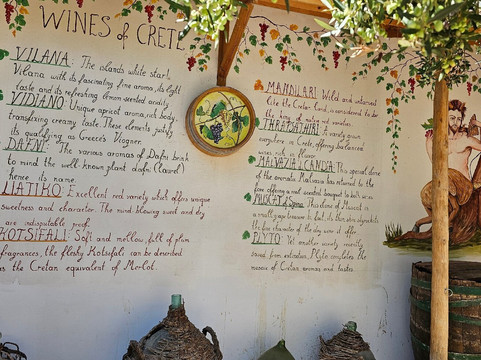 WINES of CRETE
VILANA: The islands white star!
Vilana with its fascinating fine aroma, its light
taste and its refreshing lemon-scented acidity
VIDIANO: Unique apricot aroma, rich body,
transfixing creamy taste. These elements justify
its qualifying as Greece's Viogner.
DAFNI: The various aromas of Dafni bring
to mind the well-known plant dafni (laurel)
hence its name.
LIATIKO: Excellent red variety which offers unique
sweetness and character. The mind blowing sweet and dry
are indisputable proof.
KOTSIFALI: Soft and mellow, full of plum
fragrances, the fleshy Kotsifali can be described
as the Cretan equivalent of Merlot.
MANDILARI: Wild and untamed
like the Cretan land, is considered to be
the king of native red varieties.
THRAPSATHIRI: A variety grown
everywhere in Crete, offering balanced
wines, rich in flavor.
MALVAZIA di CANDIA: This special clone
of the aromatic Malvasia has returned to the
fore offering a most scented bouquet
MUSCAT of Spina: This clone of Muscat
a multigrape known
fine character of the dry wine it offer
PLYTO: Yet another variety recently
saved from extinction, Plyto completes the
mosaic of Cretan aromas and tastes